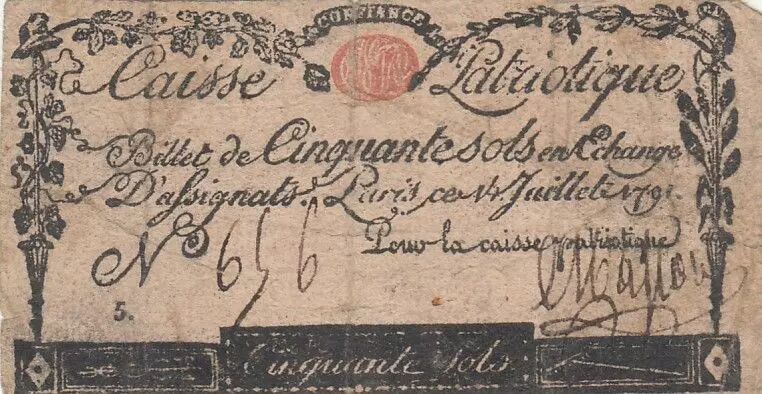 CONFIANCE
Caisse Patriotique
Billet de Cinquante sols en Echange
D'assignats. Paris ce 14 Juillet 1791.
Pour la caisse patriotique
N° 656
5.
Cinquante sols